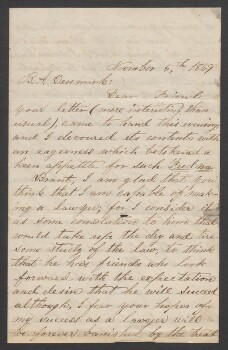 November 6th, 1869
B. A. Denmark:
Dear Friend,
your letter (more interesting than
usual) came to hand this evening
and I devoured its contents with
an eagerness which betokened a
keen appetite for such
I am glad that you
think that I am capable of mak-
ing a lawyer, for I consider it
as some consolation to him that
would take up the dry and tire
some study of the law, to think
that he has friends who look
forward with the expectation
and desire that he will succeed
although, I fear your hopes of
my success as a lawyer will
be forever banished by the